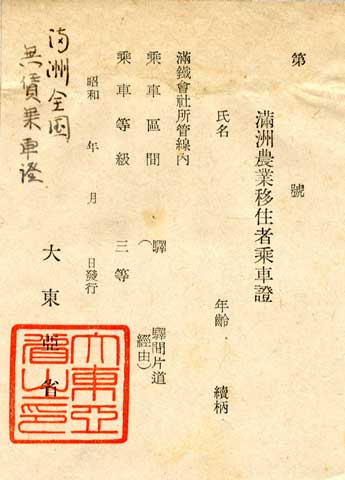 第　　號
滿洲農業移住者乘車證
氏名　　年齡　　續柄
滿鐵會社所管線內
乘車區間（　驛　　驛間片道
經由）
乘車等級　三等
昭和　年　月　日發行
大東亞省
大東亞省之印
満洲全国
無賃乗車證